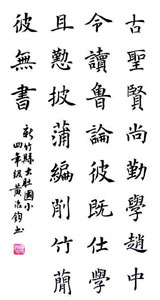 古聖賢尚勤學趙中
令讀魯論彼既仕學
且懃披蒲編削竹簡
彼無書
新竹縣大肚國小
四年級黃鈞書